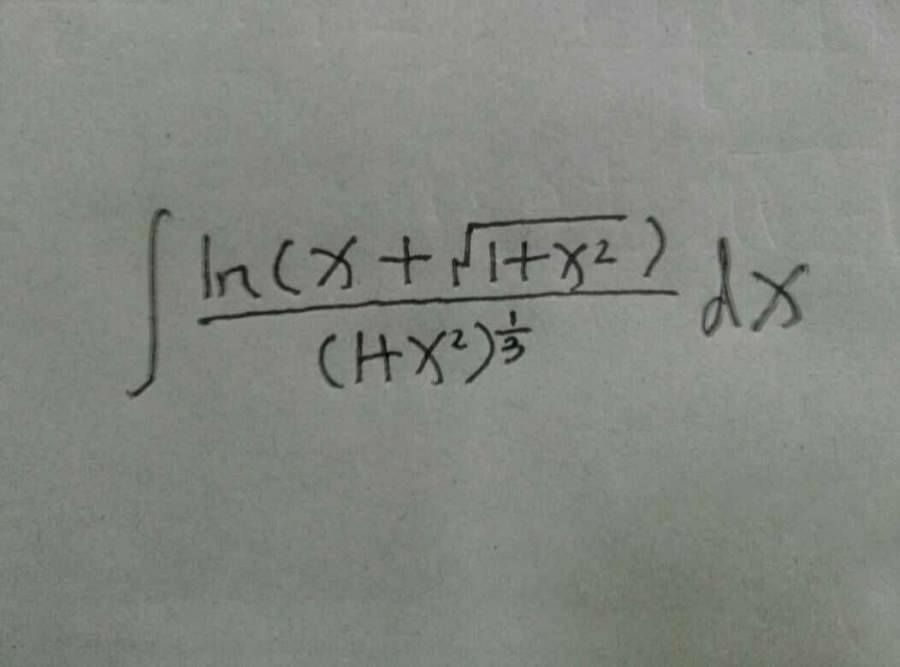 ∫ ln(x + √(1+x²)) / (1+x²)^(1/3) dx